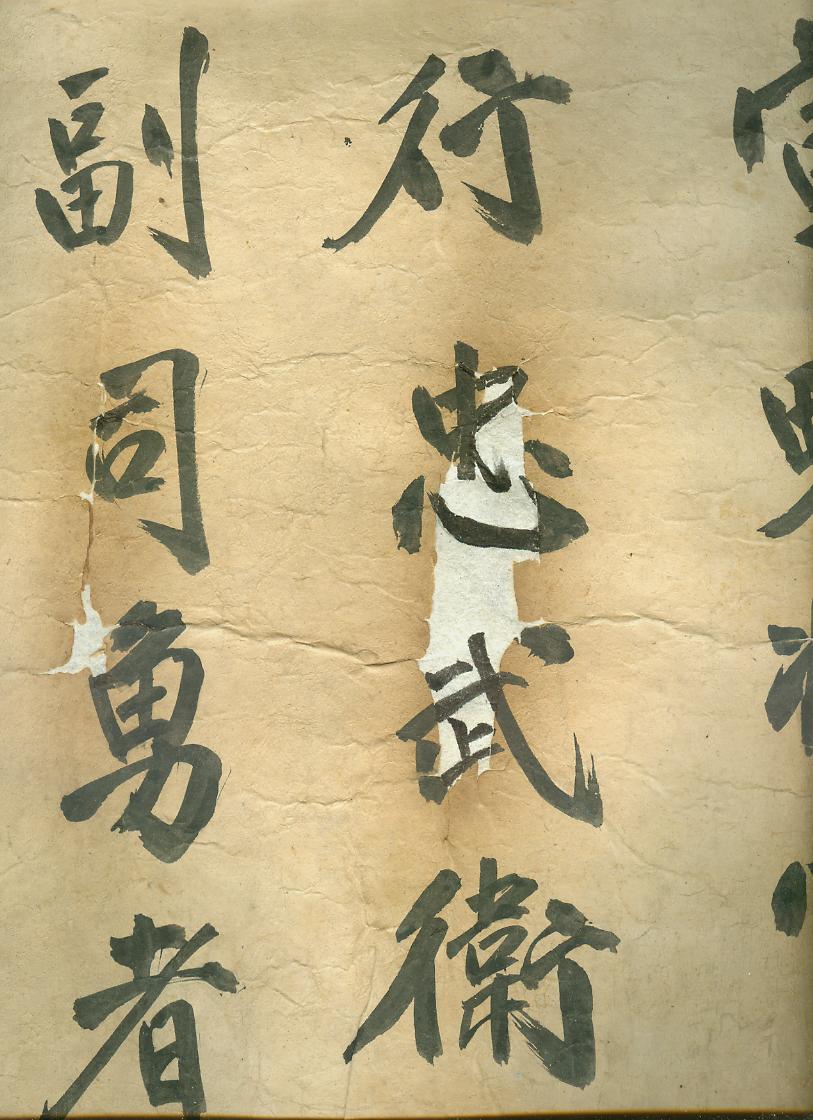 行忠武衛
副司勇者